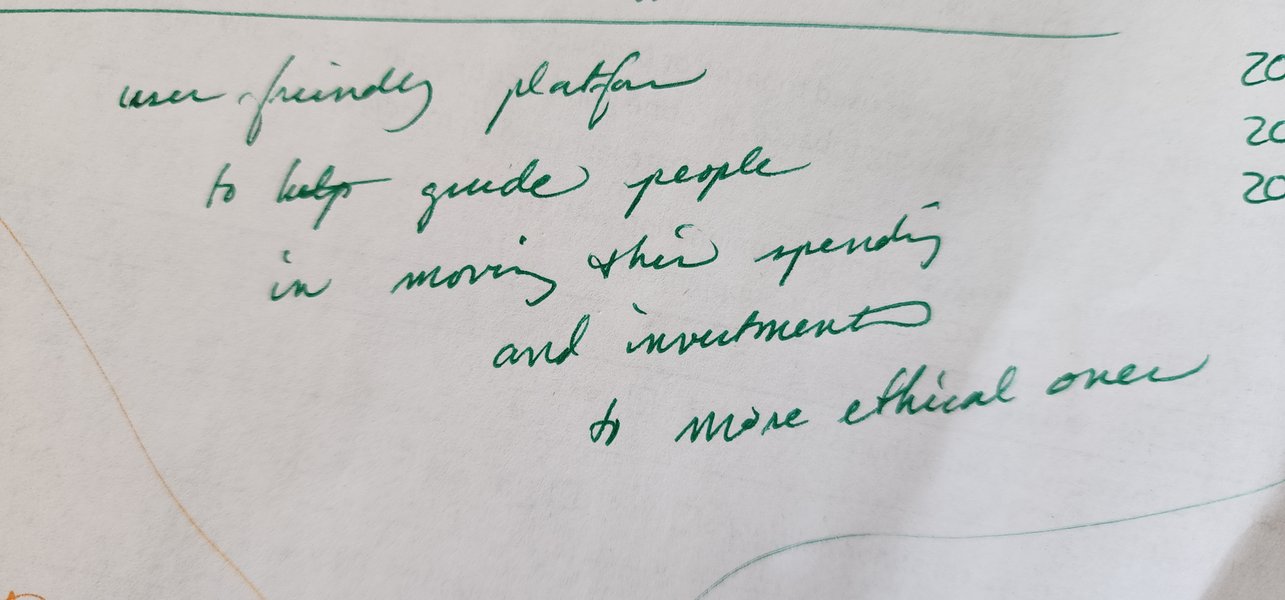 user-friendly platform
to help guide people
in moving their spending
and investments
to more ethical ones
20
20
20